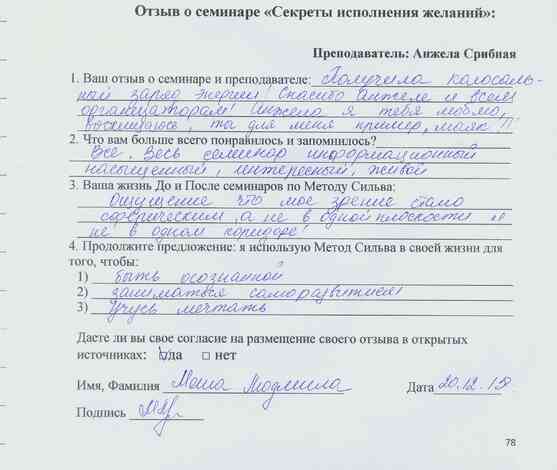 Отзыв о семинаре «Секреты исполнения желаний»:
Преподаватель: Анжела Срибная
1. Ваш отзыв о семинаре и преподавателе: Получила колосаль-
ный заряд энергии! Спасибо Анжеле и всем
организаторам! Анжела я тебя люблю,
восхищаюсь, ты для меня пример, маяк!!!
2. Что вам больше всего понравилось и запомнилось?
Все, весь семинар информационный
насыщенный, интересный, живой
3. Ваша жизнь До и После семинаров по Методу Сильва:
Ощущение что мое зрение стало
сферическим, а не в одной плоскости и
не в одном коридоре!
4. Продолжите предложение: я использую Метод Сильва в своей жизни для
того, чтобы:
1) быть осознанной
2) заниматься саморазвитием
3) учусь мечтать
Даете ли вы свое согласие на размещение своего отзыва в открытых
источниках: да нет
Имя, Фамилия Маша Людмила Дата 20.12.15
Подпись
78